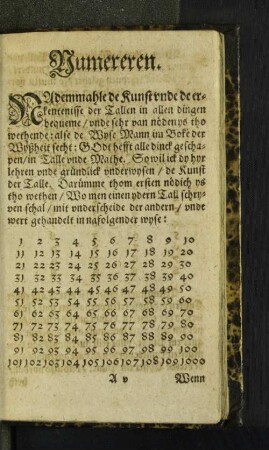 Numereren.
NAdemmahle de Kunst vnde de er-
kentenisse der Tallen in allen dingen
bequeme / vnde sehr van nöden ys tho
wethende: alse de Wyse Mann im Boke der
Wyßheit secht: GOdt hefft alle dinck gescha-
pen / in Talle vnde Mathe. So wil ick dy hyr
lehren vnde gründlick vnderwysen / de Kunst
der Talle. Darümme thom ersten nödich ys
tho wethen / Wo men einen ydern Tall schry-
ven schal / mit vnderscheide der andern / vnde
wert gehandelt in nafolgender wyse:
1 2 3 4 5 6 7 8 9 10
11 12 13 14 15 16 17 18 19 20
21 22 23 24 25 26 27 28 29 30
31 32 33 34 35 36 37 38 39 40
41 42 43 44 45 46 47 48 49 50
51 52 53 54 55 56 57 58 59 60
61 62 63 64 65 66 67 68 69 70
71 72 73 74 75 76 77 78 79 80
81 82 83 84 85 86 87 88 89 90
91 92 93 94 95 96 97 98 99 100
101 102 103 104 105 106 107 108 109 1000
A v Wenn